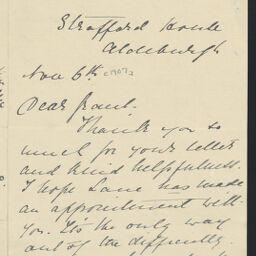 Strafford House
Aldeburgh
Nov 6th c1907?
Dear
Thank you so
much for your letter
and kind helpfulness.
I hope Lane has made
an appointment with
you. It's the only way
out of the difficulty.